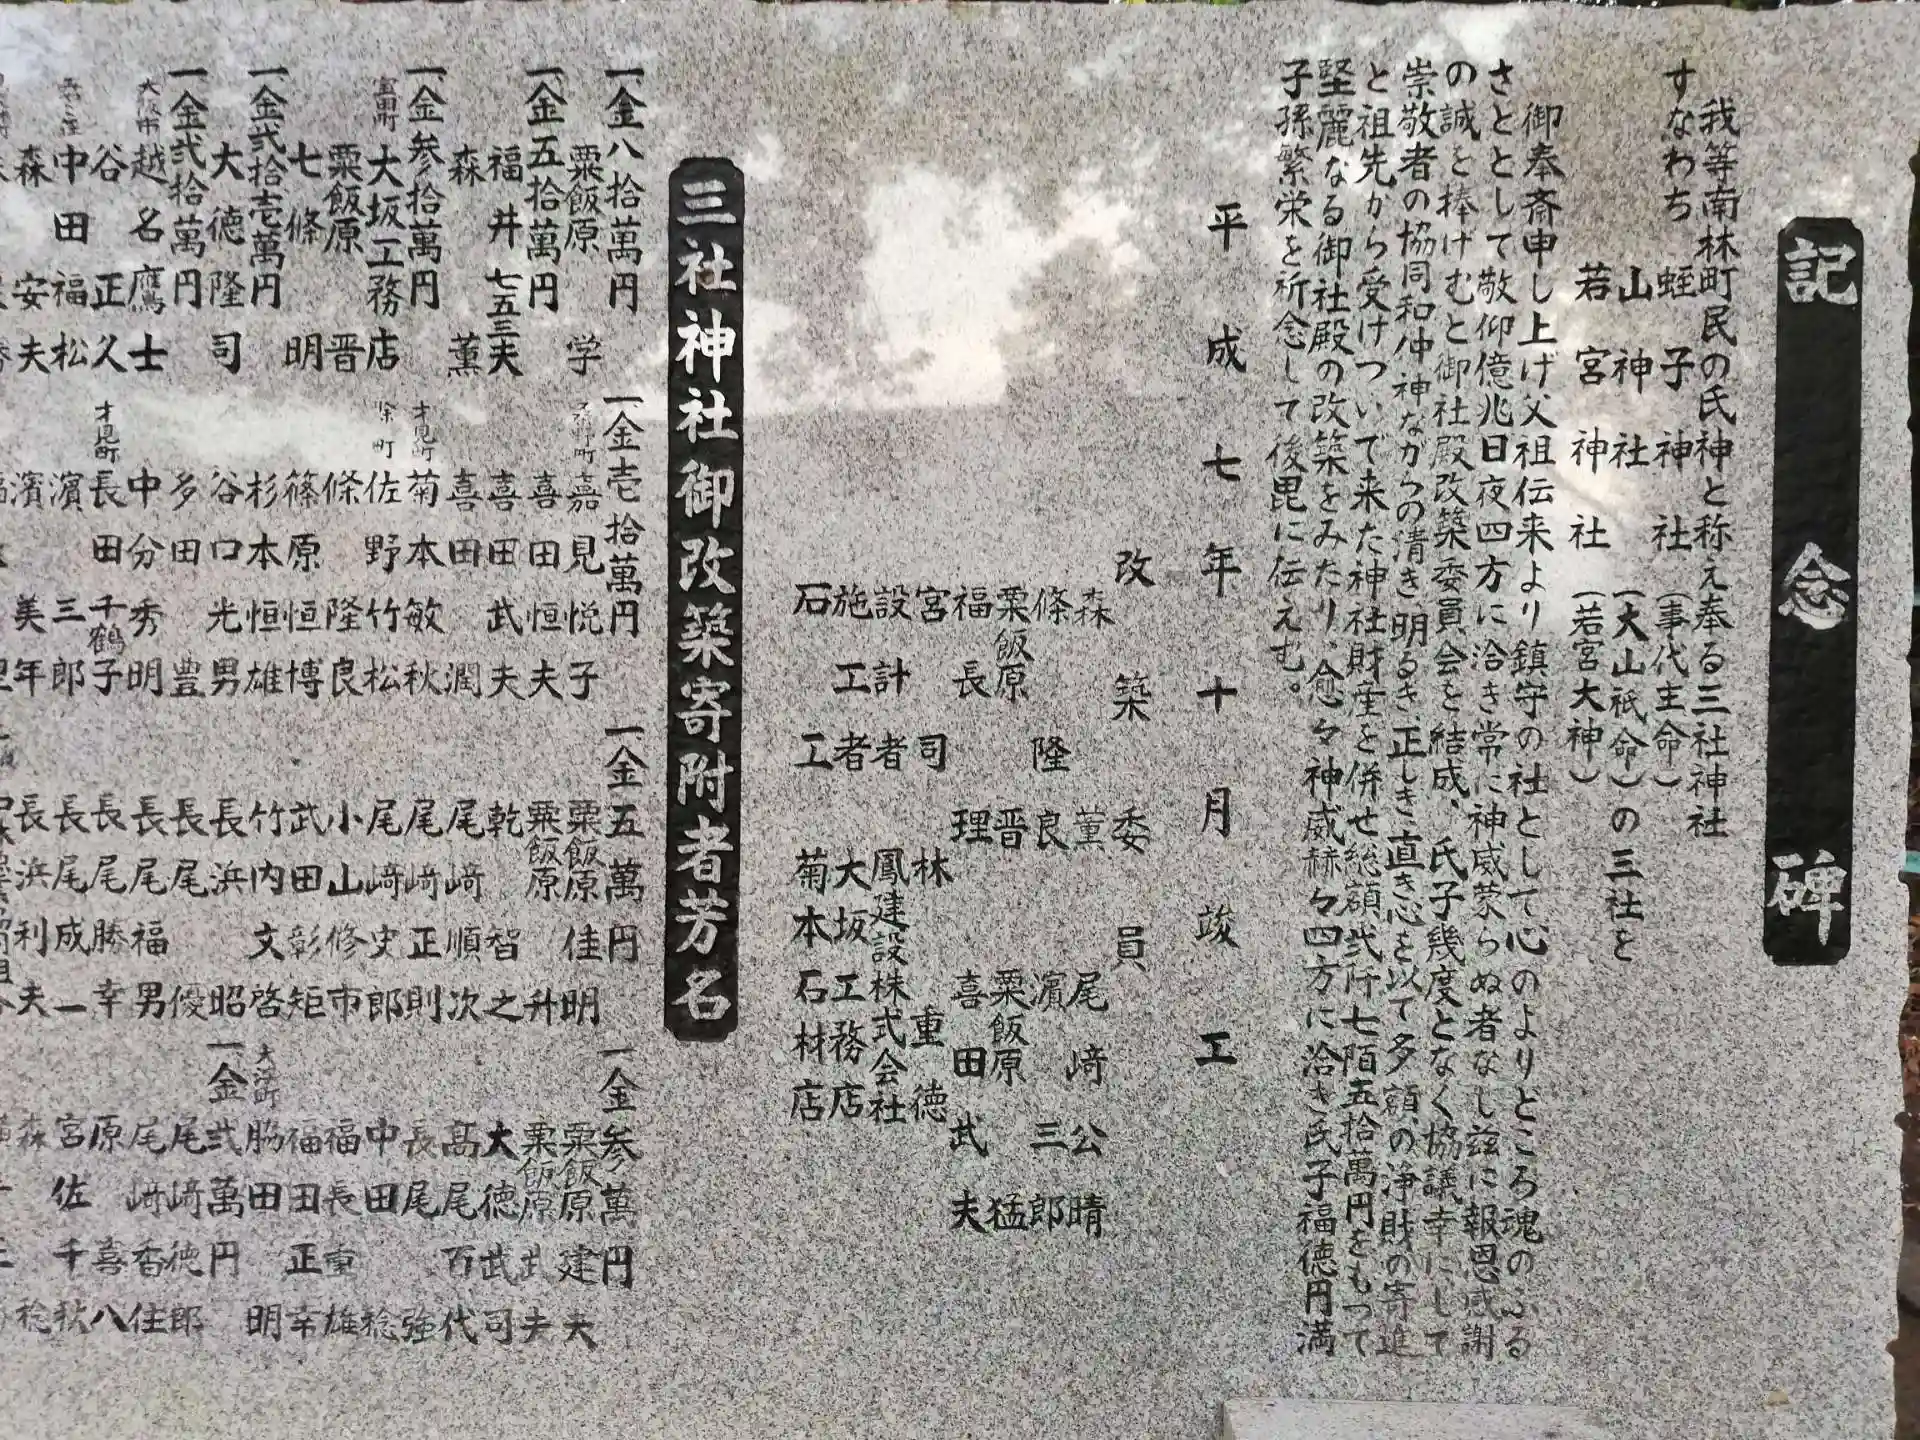 記念碑
我等南林町民の氏神と称え奉る三社神社
すなわち
蛭子神社（事代主命）
山神社（大山祇命）の三社を
若宮神社（若宮大神）
御奉斎申し上げ父祖伝来より鎮守の社として心のよりどころ魂のふる
さととして敬仰億兆日夜四方に洽き常に神威蒙らぬ者なし茲に報恩感謝
の誠を捧げむと御社殿改築委員会を結成、氏子幾度となく協議幸にして
崇敬者の協同和仲神ながらの清き明るき正しき直き心を以て多額の浄財の寄進
と祖先から受けついで来た神社財産を併せ総額弐仟七陌五拾萬円をもって
堅麗なる御社殿の改築をみたり、愈々神威赫々四方に洽き氏子福徳円満
子孫繁栄を祈念して後毘に伝えむ。
平成七年十月竣工
改築委員
森薫 尾﨑公晴
條隆良 濱三郎
粟飯原晋 粟飯原猛
福長理 喜田武夫
宮司 林重徳
設計者 鳳建設株式会社
施工者 大坂工務店
石工 菊本石材店
三社神社御改築寄附者芳名
一金八拾萬円
粟飯原学
一金五拾萬円
福井七五三夫
森薫
一金参拾萬円
富田町 大坂工務店
粟飯原晋
七條明
一金弐拾壱萬円
大徳隆司
一金弐拾萬円
大阪市 越名鷹士
谷正久
中田福松
森安夫
一金壱拾萬円
嘉見悦子
喜田恒夫
喜田武夫
喜田潤
才見町 菊本敏秋
佐野竹松
條隆良
篠原恒博
杉本恒雄
谷口光男
多田豊
中分秀明
才見町 長田千鶴子
濱三郎
濱美年
一金五萬円
粟飯原佳明
粟飯原升
乾智之
尾﨑順次
尾﨑正則
尾﨑史郎
小山修市
武田彰矩
竹内文啓
長浜昭
長尾優
長尾福男
長尾勝幸
長尾成一
長浜利夫
一金参萬円
粟飯原建夫
粟飯原武夫
大徳武司
髙尾百代
長尾強
中田稔
福長重雄
福田正幸
大潟町 脇田明
一金弐萬円
尾﨑徳郎
尾﨑香住
原喜八
宮佐千秋
森稔